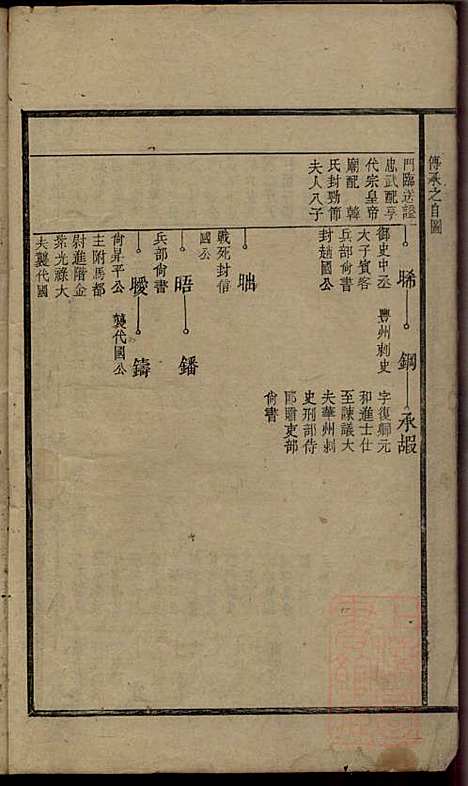 傳承之自圖
門臨送諡
忠武配享
代宗皇帝
廟配韓
氏封勁節
夫人八子
晞
御史中丞
太子賓客
兵部尙書
封趙國公
鋼
豐州刺史
承嘏
字復卿元
和進士仕
至諫議大
夫華州刺
史刑部侍
郎贈吏部
尙書
昢
戰死封信
國公
晤
兵部尙書
鐇
曖
尙昇平公
主附馬都
尉進階金
紫光祿大
夫襲代國
鑄
襲代國公